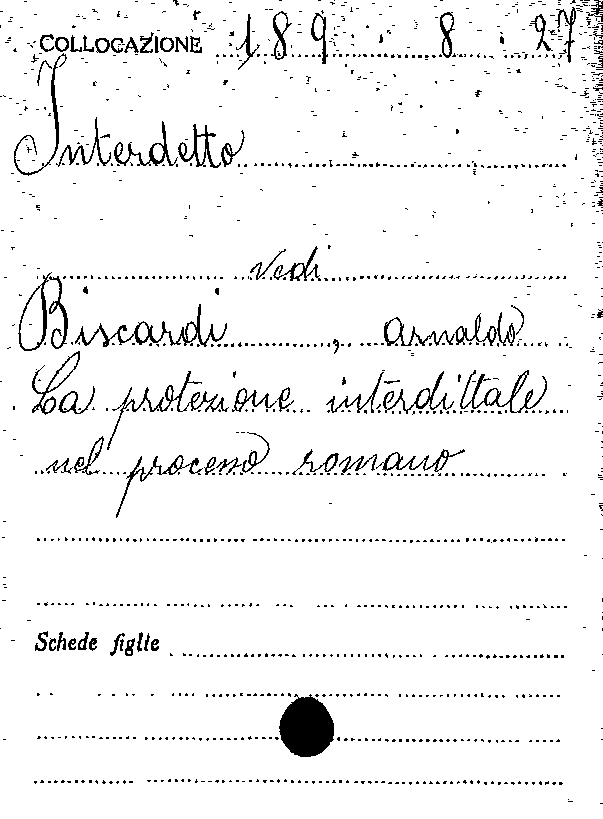 COLLOCAZIONE 189. 8. 27
Interdetto
vedi
Biscardi, Arnaldo
La protezione interdittale
nel processo romano
Schede figlie